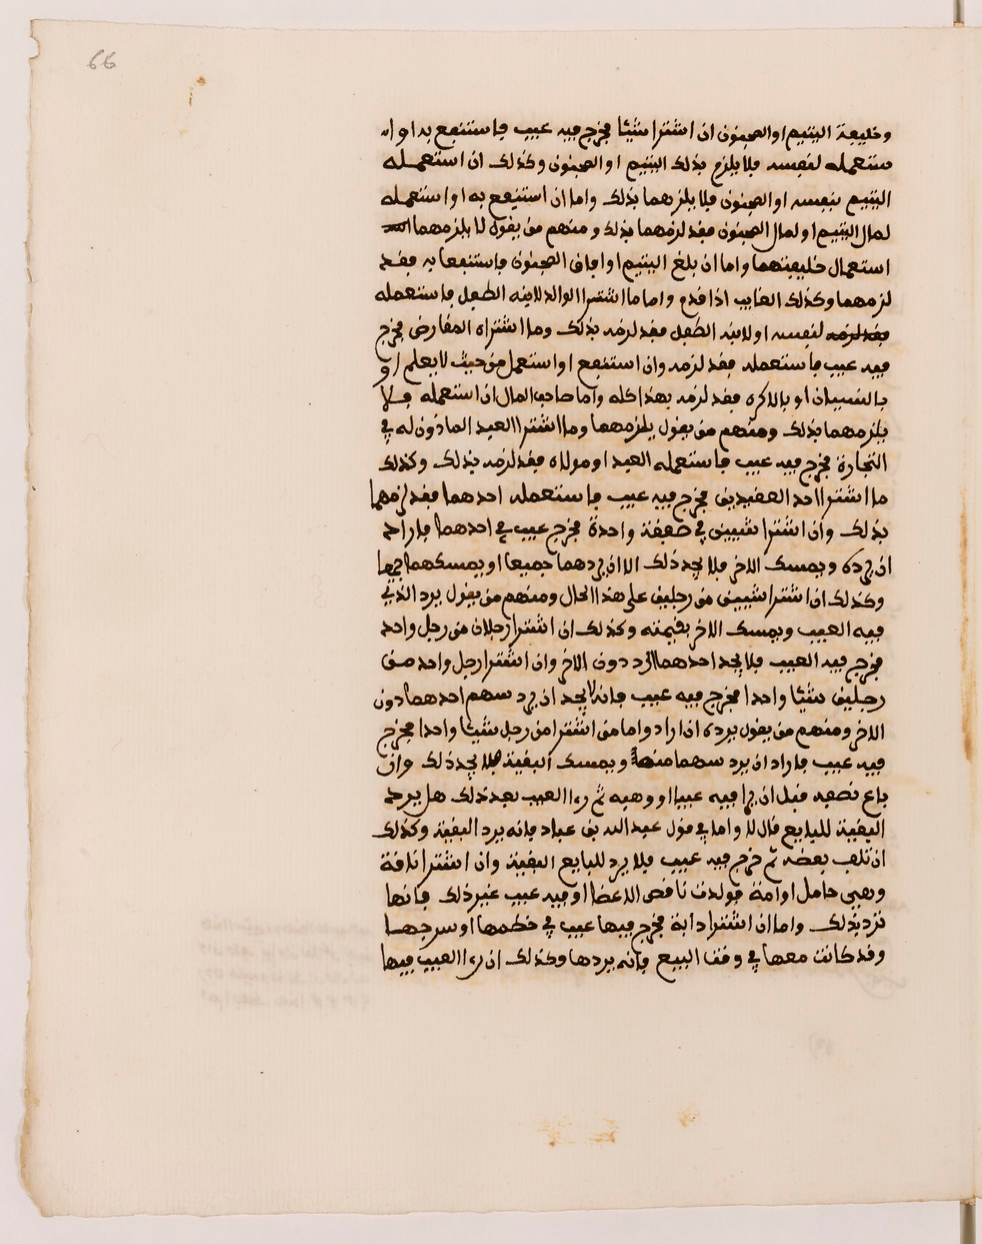 66
وخليفة اليتيم او المجنون ان اشترا شيئا فخرج فيه عيب فاستنفع به او ان
ستعمله لنفسه فلا يلزم بذلك اليتيم او المجنون وكذلك ان استعمله
اليتيم بنفسه او المجنون فلا يلزهما بذلك واما ان استنفع به او استعمله
لمال اليتيم او لمال المجنون فقد لزمهما بذلك ومنهم من يقول لا يلزمهما
استعمال خليفتهما واما ان بلغ اليتيم او افاق المجنون فاستنفعا به فقد
لزمهما وكذلك الغايب اذا قدم واما ما اشترا الوالد لابنه الطفل فاستعمله
فقد لزمه لنفسه او لابنه الطفل فقد لزمه بذلك وما اشتراه المقارض فخرج
فيه عيب فاستعمله فقد لزمه وان استنفع او استعمل من حيث لا يعلم او
بالنسيان او بالاكره فقد لزمه بهذا كله واما صاحب المال ان استعمله فلا
يلزمهما بذلك ومنهم من يقول يلزمهما وما اشترا العبد الماذون له في
التجارة فخرج فيه عيب فاستعمله العبد او مولاه فقد لزمه بذلك وكذلك
ما اشترا احد العقيدين فخرج فيه عيب فاستعمله احدهما فقد لزمهما
بذلك وان اشترا شيين في صفقة واحدة فخرج عيب في احدهما فاراد
ان يرده ويمسك الاخر فلا يجد ذلك الا ان يردهما جميعا او يمسكهما جميعا
وكذلك ان اشترا شيين من رجلين على هذا الحال ومنهم من يقول يرد الذي
فيه العيب ويمسك الاخر بقيمته وكذلك ان اشترا رجلان من رجل واحد
فخرج فيه العيب فلا يجد احدهما الرد دون الاخر وان اشترا رجل واحد من
رجلين شيئا واحدا فخرج فيه عيب فانه لا يجد ان يرد سهم احدهما دون
الاخر ومنهم من يقول يرده ان اراد واما من اشترا من رجل شيئا واحدا فخرج
فيه عيب فاراد ان يرد سهما منه ويمسك البقية فلا يجد ذلك وان
باع نصفه قبل ان يرا فيه عيبا او وهبه ثم رءا العيب بعد ذلك هل يرد
البقية للبايع قال لا واما في قول عبد الله بن عباد فانه يرد البقية وكذلك
ان تلف بعضه ثم خرج فيه عيب فلا يرد للبايع البقية وان اشترا ناقة
وهي حامل او امة فولدت ناقص الاعضا او فيه عيب غير ذلك فانها
ترد بذلك واما ان اشترا دابة فخرج فيها عيب في خطمها او سرجها
وقد كانت معها في وقت البيع فانه يردها وكذلك ان رءا العيب فيها